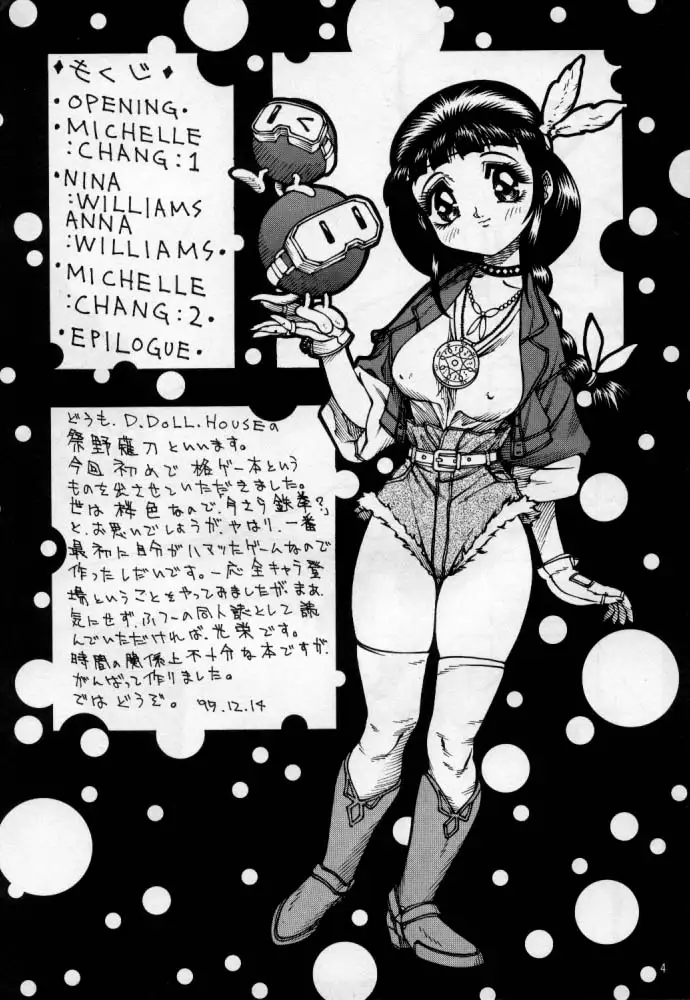 ♦もくじ♦
・OPENING・
・MICHELLE
:CHANG:1
・NINA
:WILLIAMS
ANNA
:WILLIAMS・
・MICHELLE
:CHANG:2・
・EPILOGUE・
どうも、D.DOLL.HOUSEの
祭野薙刀といいます。
今回初めで格ゲー本という
ものを出させていただきました。
世は 色なので、今さら鉄拳?」
と、お思いでしょうが、やはり、一番
最初に自分がハマッたゲームなので
作ったしだいです。一応全キャラ登
場ということをやってみましたが、まあ、
気にせず、ふつーの同人誌として読
んでいただければ、光栄です。
時間の関係上不十分な本ですが、
がんばって作りました。
ではどうぞ。 99.12.14
4